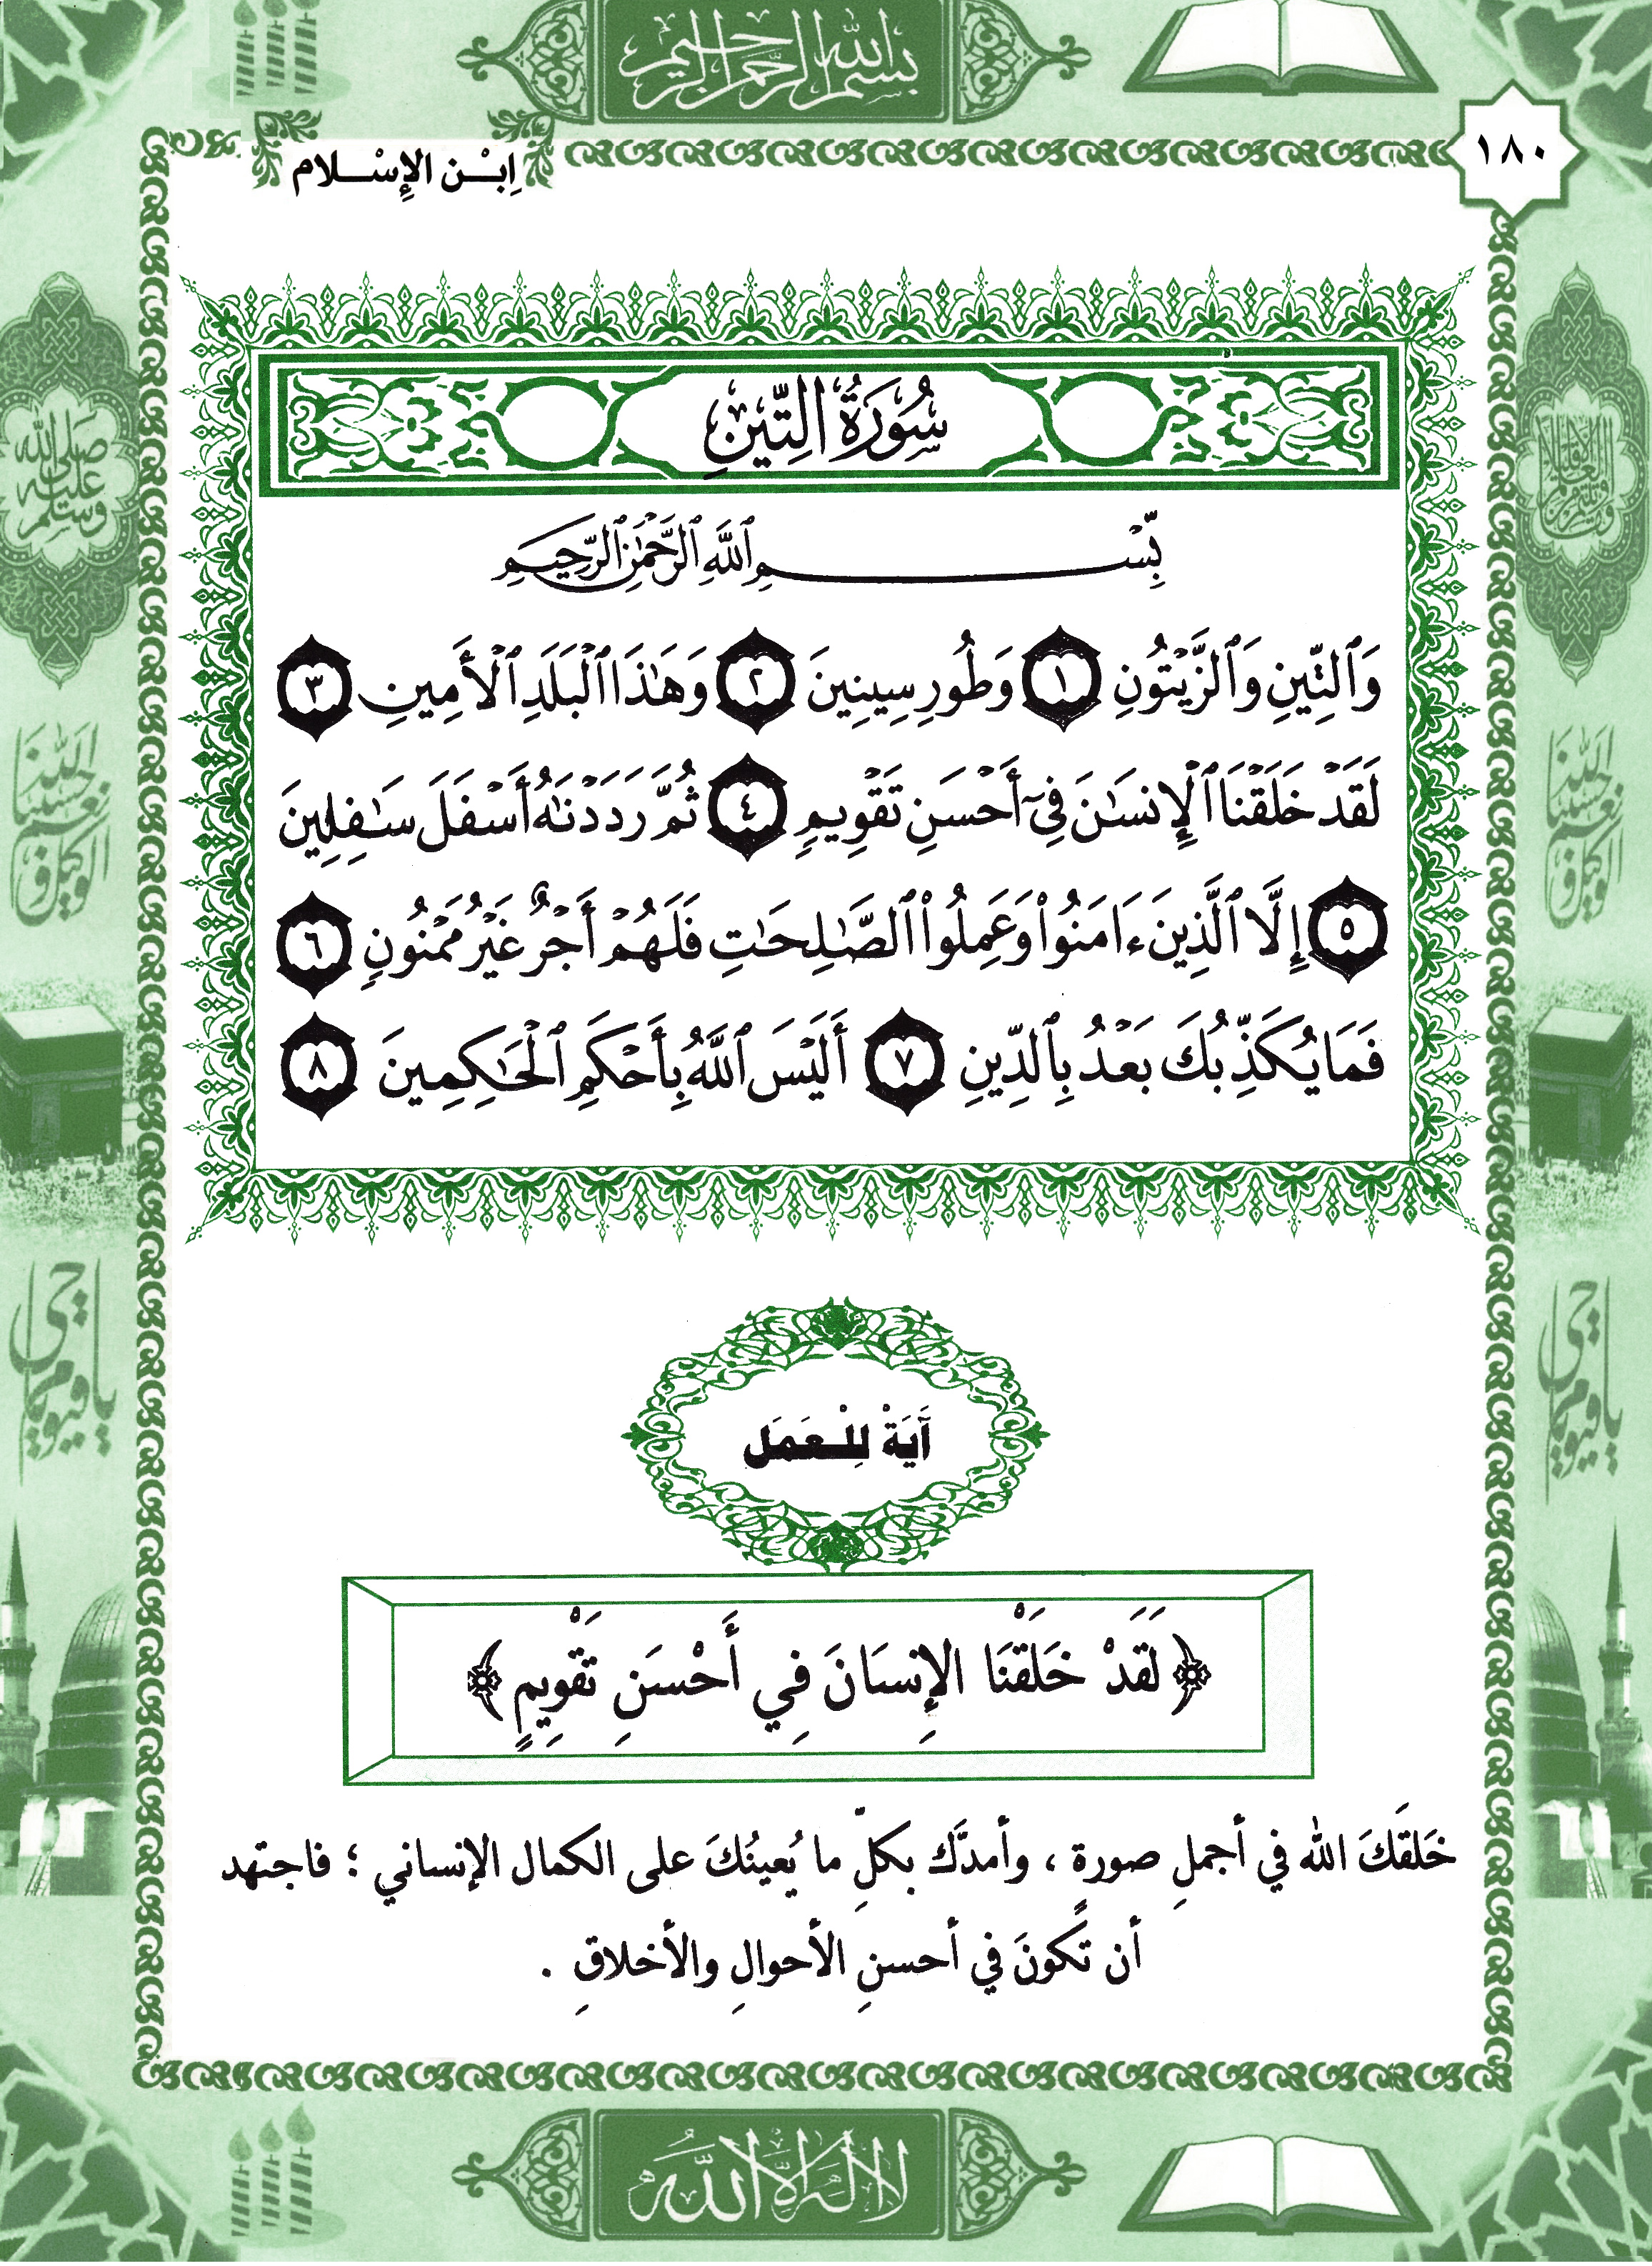 بسم الله الرحمن الرحيم
١٨٠
اِبْـن الإِسْـلام
سُورَةُ التِّينِ
بِّسْـــــمِ ٱللَّهِ ٱلرَّحْمَٰنِ ٱلرَّحِيمِ
وَٱلتِّينِ وَٱلزَّيْتُونِ ١ وَطُورِ سِينِينَ ٢ وَهَٰذَا ٱلْبَلَدِ ٱلْأَمِينِ ٣
لَقَدْ خَلَقْنَا ٱلْإِنسَٰنَ فِىٓ أَحْسَنِ تَقْوِيمٍ ٤ ثُمَّ رَدَدْنَٰهُ أَسْفَلَ سَٰفِلِينَ
٥ إِلَّا ٱلَّذِينَ ءَامَنُوا۟ وَعَمِلُوا۟ ٱلصَّٰلِحَٰتِ فَلَهُمْ أَجْرٌ غَيْرُ مَمْنُونٍ ٦
فَمَا يُكَذِّبُكَ بَعْدُ بِٱلدِّينِ ٧ أَلَيْسَ ٱللَّهُ بِأَحْكَمِ ٱلْحَٰكِمِينَ ٨
آيَةْ لِلْـعَمَل
﴿لَقَدْ خَلَقْنَا الإِنسَانَ فِي أَحْسَنِ تَقْوِيمٍ﴾
خَلقَكَ الله في أجملِ صورةٍ ، وأمدَّك بكلِّ ما يُعينُكَ على الكمال الإنساني ؛ فاجتهد
أن تكونَ في أحسنِ الأحوالِ والأخلاقِ .
لا اله الا اللهُ
صلى الله
عليه
وسلم
حسبنا الله
ونعم الوكيل
يا حي يا قيوم
حسبنا الله
ونعم الوكيل
يا حي يا قيوم